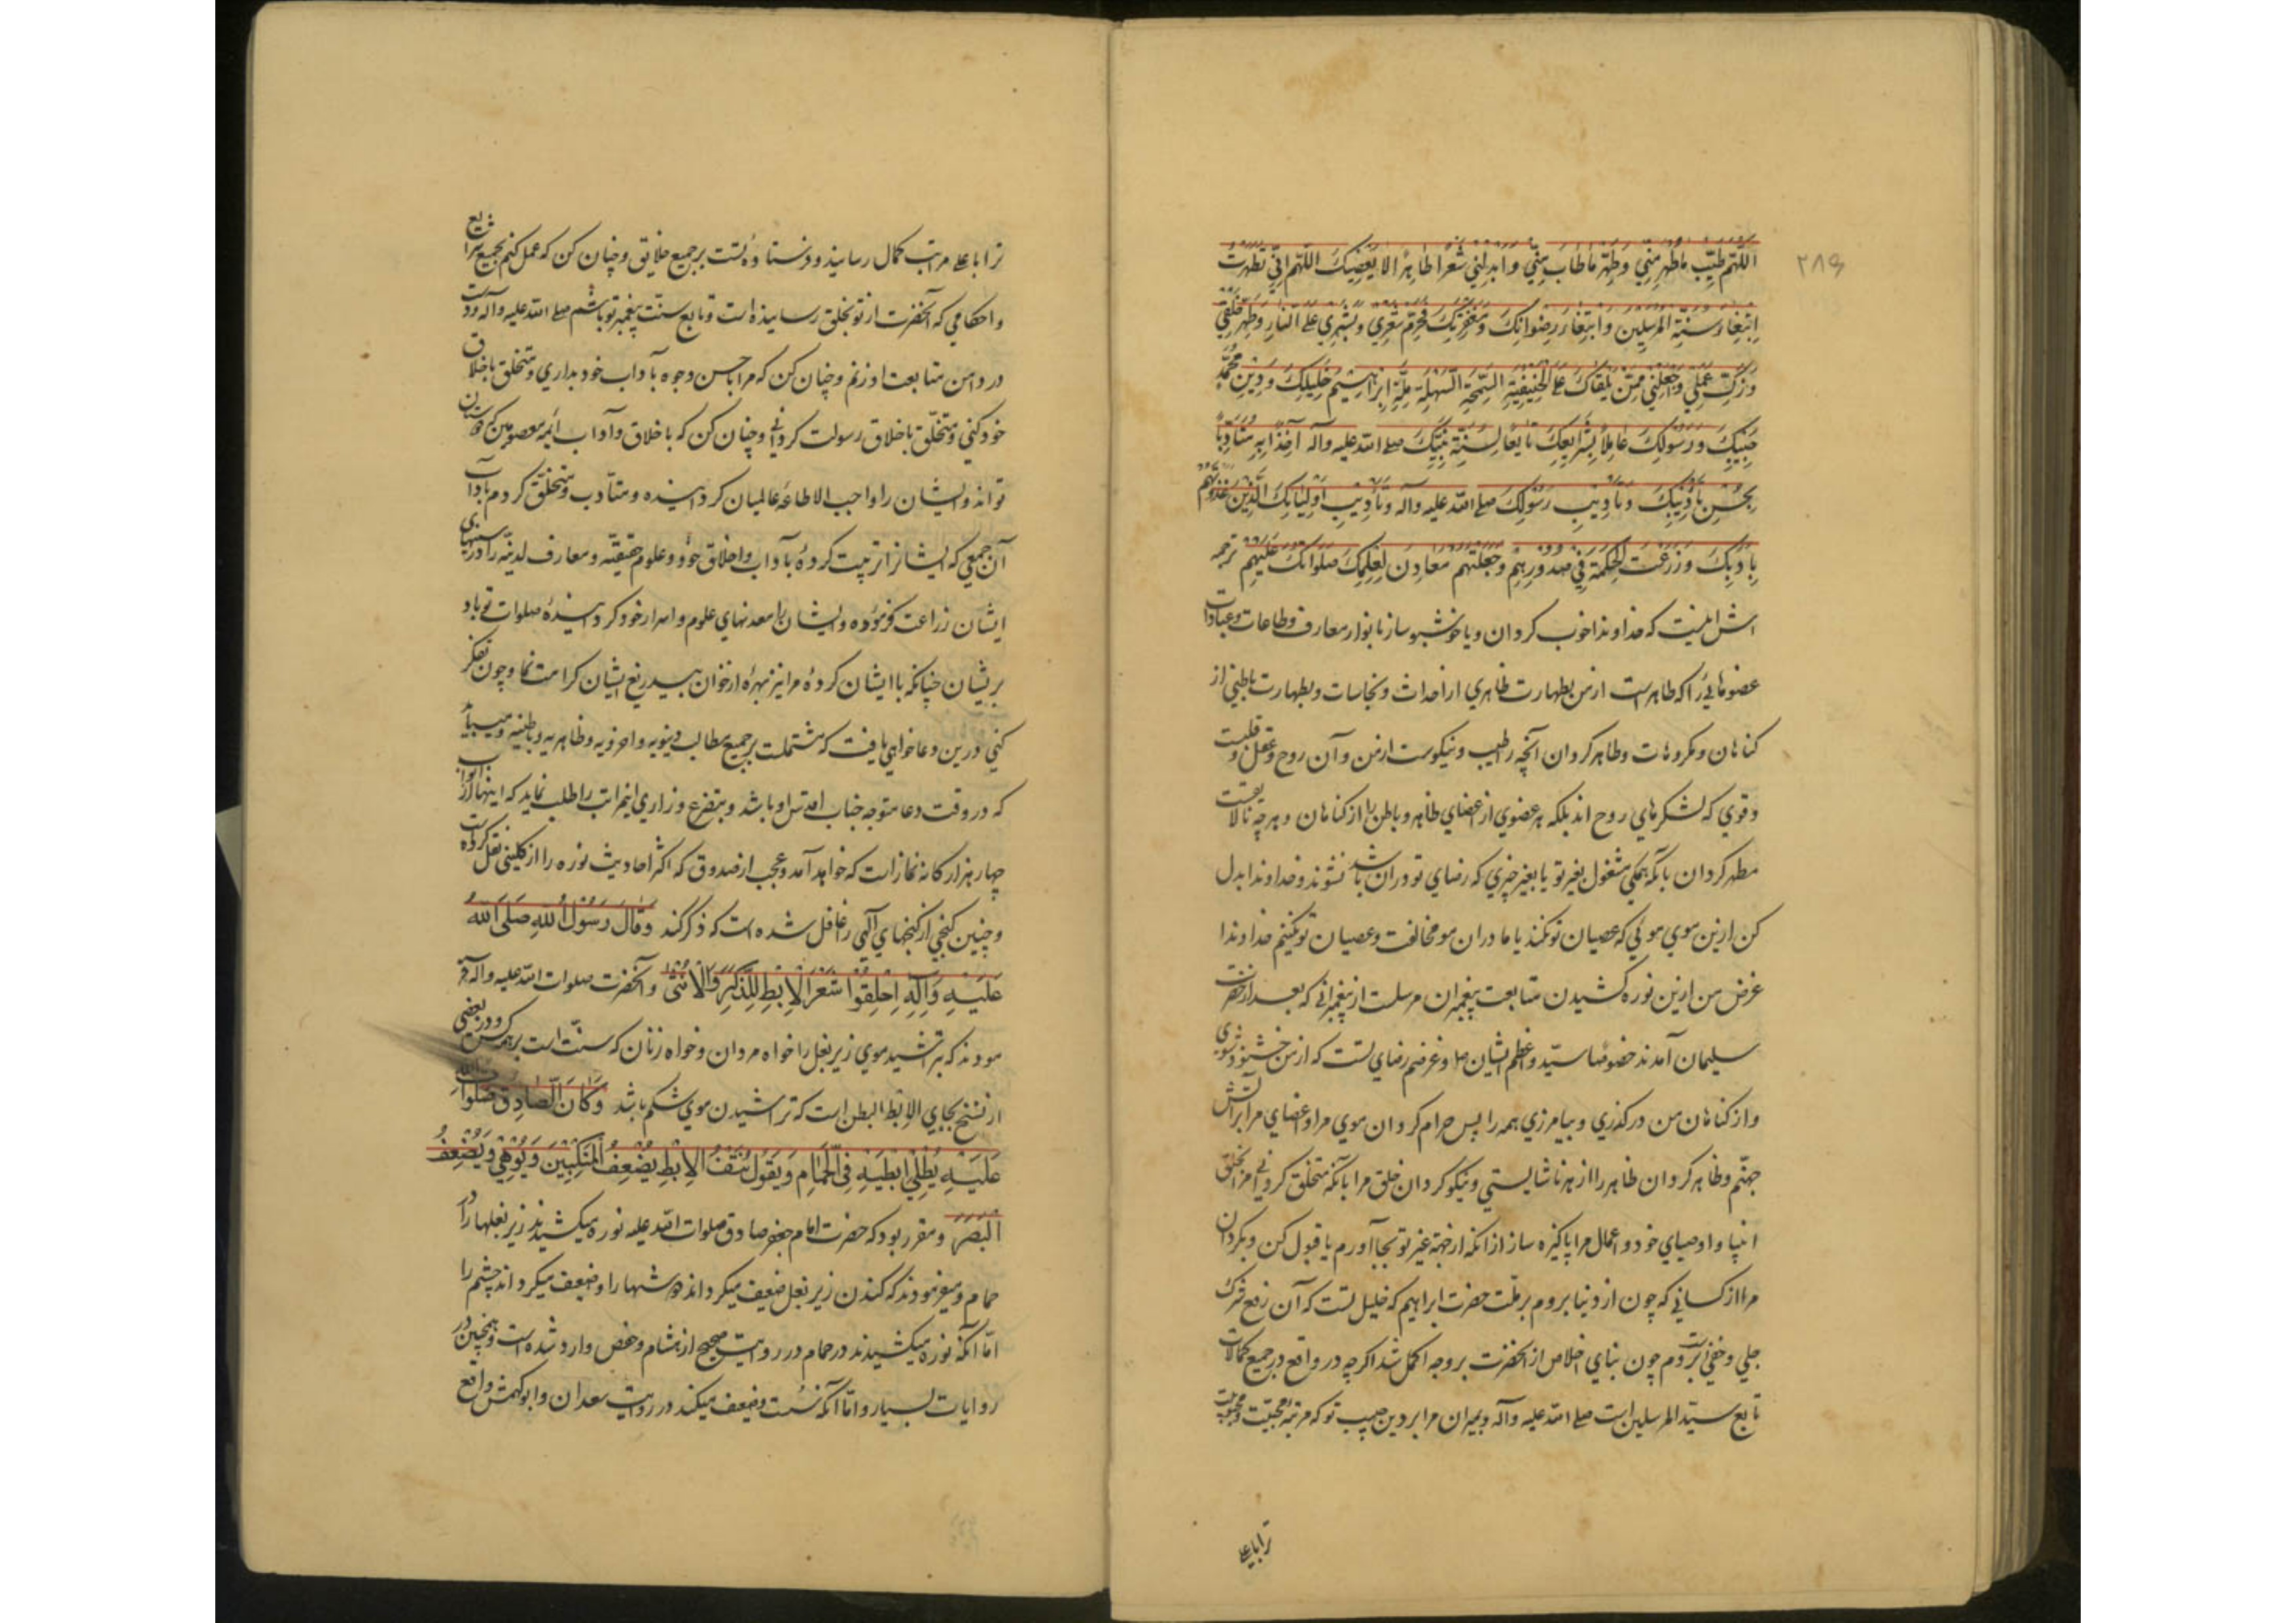 ۲۸۹
اللّهمّ طَيِّب ما طَهُر مِنّي وطَهِّر ما طاب مِنّي وابدلني شَعرًا طاهِرًا لا يَعصِيك اللّهمّ اِنّي تطهرت
اِبتِغاء سُنّة المرسلين وابتغاء رِضوانِك ومَغفِرَتِك فحرّم شَعري وبَشَري علي النار وطهّر خَلقي
وزكّ عملي واجعلني ممّن يلقاك علي الحنيفيّة السّمحة السّهلة ملّة ابراهيم خليلك ودين محمّد
حَبيبك ورسولك عاملًا بشرايعك تابعًا لسنّة نبيّك صلي الله عليه وآله آخذًا به متأدّبًا
بحسن تأديبك وتأديب رسولك صلي الله عليه وآله وتأديب اوليائك الّذين غذوتهم
بادبك وزرعت الحكمة في صدورهم وجعلتهم معادن لعلمك صلواتك عليهم ترجمه
اش اينست که خداوندا خوب کردان ويا خوشبو ساز بانوار معارف وطاعات وعبادات
عضوهائي را که طاهر است ازمن بطهارت ظاهري از احداث ونجاسات وبطهارت باطني از
کناهان ومکروهات وطاهر کردان آنچه را طيب ونيکوست ازمن وآن روح وعقل وقلبست
وقوي که لشکرهاي روح اند بلکه هر عضوي از اعضاي ظاهر وباطن را از کناهان وهرچه نالايقست
مطهر کردان بآنکه همکي مشغول بغير تو يا بغير چيزي که رضاي تو دران باشد نشوند وخداوندا بدل
کن ازين موي موئي که عصيان تو نکند يا ما دران مو مخالفت وعصيان تو نکنيم خداوندا
غرض من ازين نوره کشيدن متابعت پيغمبران مرسلست از پيغمبراني که بعد از حضرت
سليمان آمدند خصوصًا سيّد واعظم ايشان ص وغرضم رضاي تست که ازمن خشنود شوي
واز کناهان من درکذري وبيامرزي همه را پس حرام کردان موي مرا واعضاي مرا بر آتش
جهنّم وطاهر کردان ظاهر مرا از هر ناشايستي ونيکو کردان خلق مرا بآنکه متخلق کرداني مرا بخلق
انبيا واوصياي خود واعمال مرا پاکيزه ساز از آنکه از جهة غير تو بجا آورم يا قبول کن وبکردان
مرا از کساني که چون از دنيا بروم بر ملّت حضرت ابراهيم که خليل تست که آن رفع شرک
جلي وخفي است بروم چون بناي اخلاص از آنحضرت بروجه اکمل شد اکرچه در واقع در جميع کمالات
تابع سيّد المرسلين است صلي الله عليه وآله وبميران مرا بر دين حبيب تو که مرتبهٔ محبّيت ومحبوبيت
ترا باعلي
ترا باعلي مراتب کمال رسانيد وفرستادهٔ تست بر جميع خلايق وچنان کن که عمل کنم بجميع شرايع
واحکامي که آنحضرت از تو بخلق رسانيده است وتابع سنّت پيغمبر تو باشم صلي الله عليه وآله ودست
در دامن متابعت او زنم وچنان کن که مرا باحسن وجوه بآداب خود بداري ومتخلق باخلاق
خود کني ومتخلّق باخلاق رسولت کرداني وچنان کن که باخلاق وآداب ائمهٔ معصومين که دوستان
تو اند وايشان را واجب الاطاعهٔ عالميان کردانيده ومتأدب ومتخلق کردم بآداب
آن جمعي که ايشانرا تربيت کردهٔ بآداب واخلاق خود وعلوم حقيقيّه ومعارف لدنيّه را در سينهاي
ايشان زراعت فرموده وايشان را معدنهاي علوم واسرار خود کردانيدهٔ صلوات تو باد
بريشان چنانکه با ايشان کردهٔ مرا نيز بهرهٔ از خوان بيدريغ ايشان کرامت نما وچون تفکر
کني درين دعا خواهي يافت که مشتملست بر جميع مطالب دنيويه واخرويه وظاهريه وباطنيه وميبايد
که در وقت دعا متوجه جناب اقدس او باشد وبتضرع وزاري اين مراتب را طلب نمايد که اينها از ابواب
چهار هزار کانهٔ نماز است که خواهد آمد وعجب از صدوق که اکثر احاديث نوره را از کليني نقل کرده است
وچنين کنجي از کنجهاي آلهي را غافل شده است که ذکر کند وَقالَ رَسُولُ اللهِ صَلَّی اللهُ
عَلَيْهِ وَآلِهِ اِحْلِقُوا شَعْرَ الْاِبْطِ لِلذَّكَرِ وَالْاُنْثٰی وآنحضرت صلوات الله عليه وآله فر
مودند که بتراشيد موي زير بغل را خواه مردان وخواه زنان که سنّت است بر همه کس ودر بعضي
از نسخ بجاي الابط البطن است که تراشيدن موي شکم باشد وَكانَ الصّادِقُ صَلَواتُ اللهِ
عَلَيْهِ يُطْلِي اِبْطَيْهِ فِي الْحَمّامِ وَيَقُولُ نَتْفُ الْاِبْطِ يُضْعِفُ الْمَنْكِبَيْنِ وَيُوهِي وَيُضْعِفُ
الْبَصَرَ ومقرر بود که حضرت امام جعفر صادق صلوات الله عليه نوره ميکشيدند زير بغلها را در
حمام وميفرمودند که کندن زير بغل ضعيف ميکرداند دوشها را وضعيف ميکرداند چشم را
امّا آنکه نوره ميکشيدند در حمام در روايت صحيح از هشام وحفص وارد شده است وهمچنين در
روايات بسيار وامّا آنکه سُست وضعيف ميکند در روايت سعدان وابو کهمش واقع